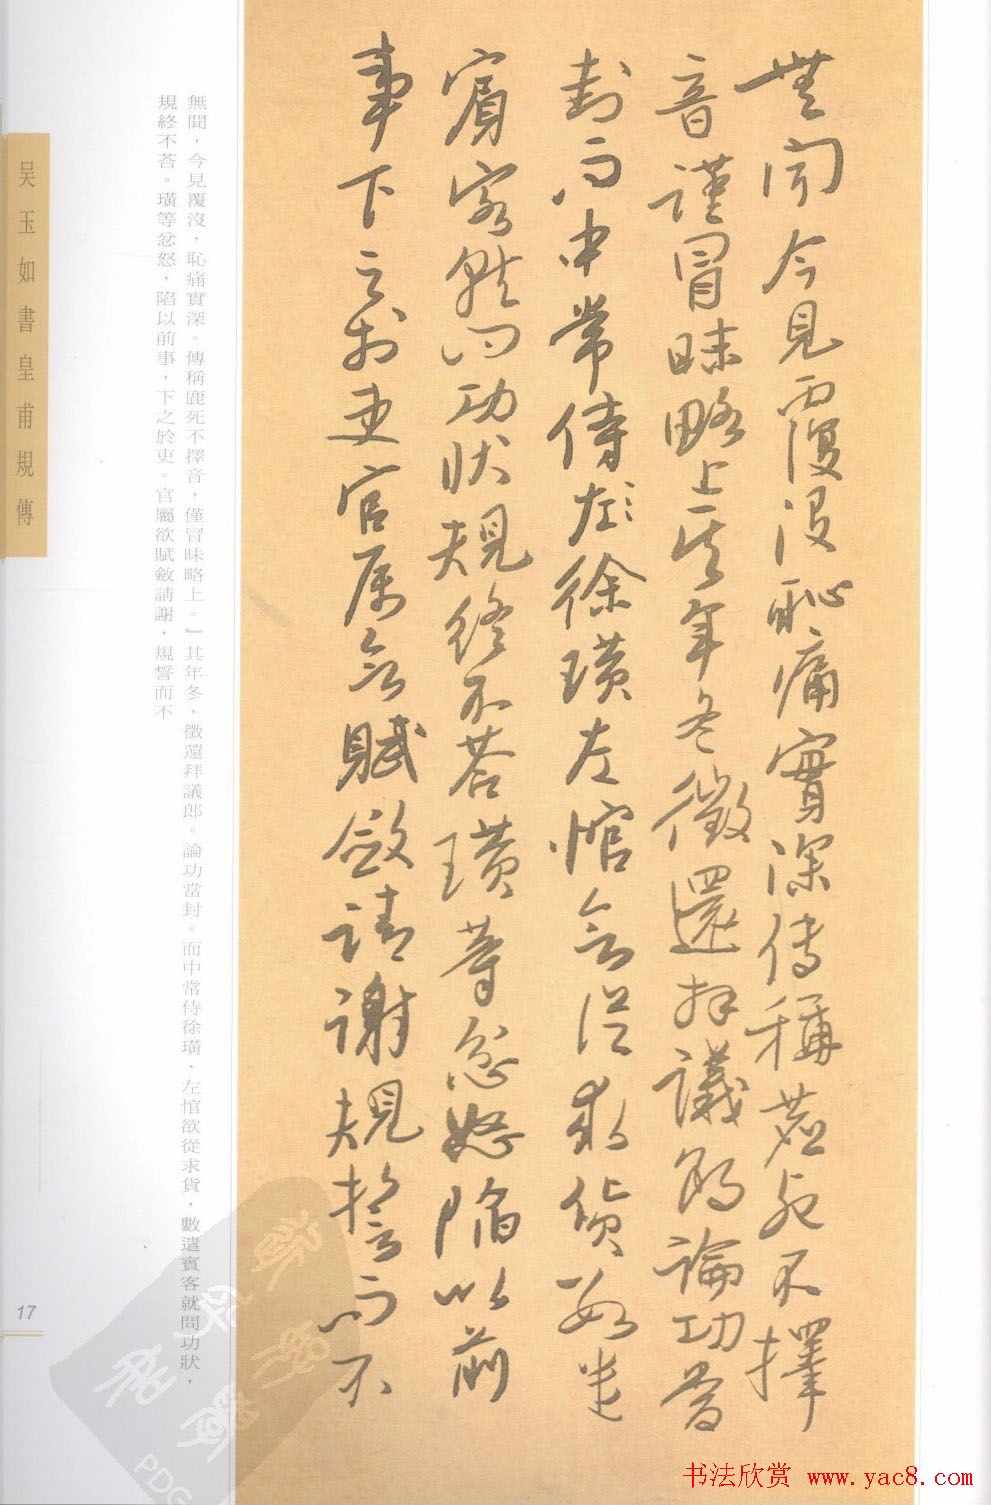 無聞今見覆沒恥痛實深傳稱鹿死不擇
音謹冒昧略上其年冬徵還拜議郎論功當
封而中常侍左徐璜左悺欲從求貨數遣
賓客就問功狀規終不荅璜等忿怒陷以前
事下之於吏官屬欲賦斂請謝規誓而不
無聞，今見覆沒，恥痛實深。傳稱鹿死不擇音，僅冒昧略上。』其年冬，徵還拜議郎。論功當封。而中常侍徐璜、左悺欲從求貨，數遣賓客就問功狀，
規終不荅。璜等忿怒，陷以前事，下之於吏。官屬欲賦斂請謝，規誓而不
吴玉如書皇甫規傳
17
PDG
书法欣赏 www.yac8.com